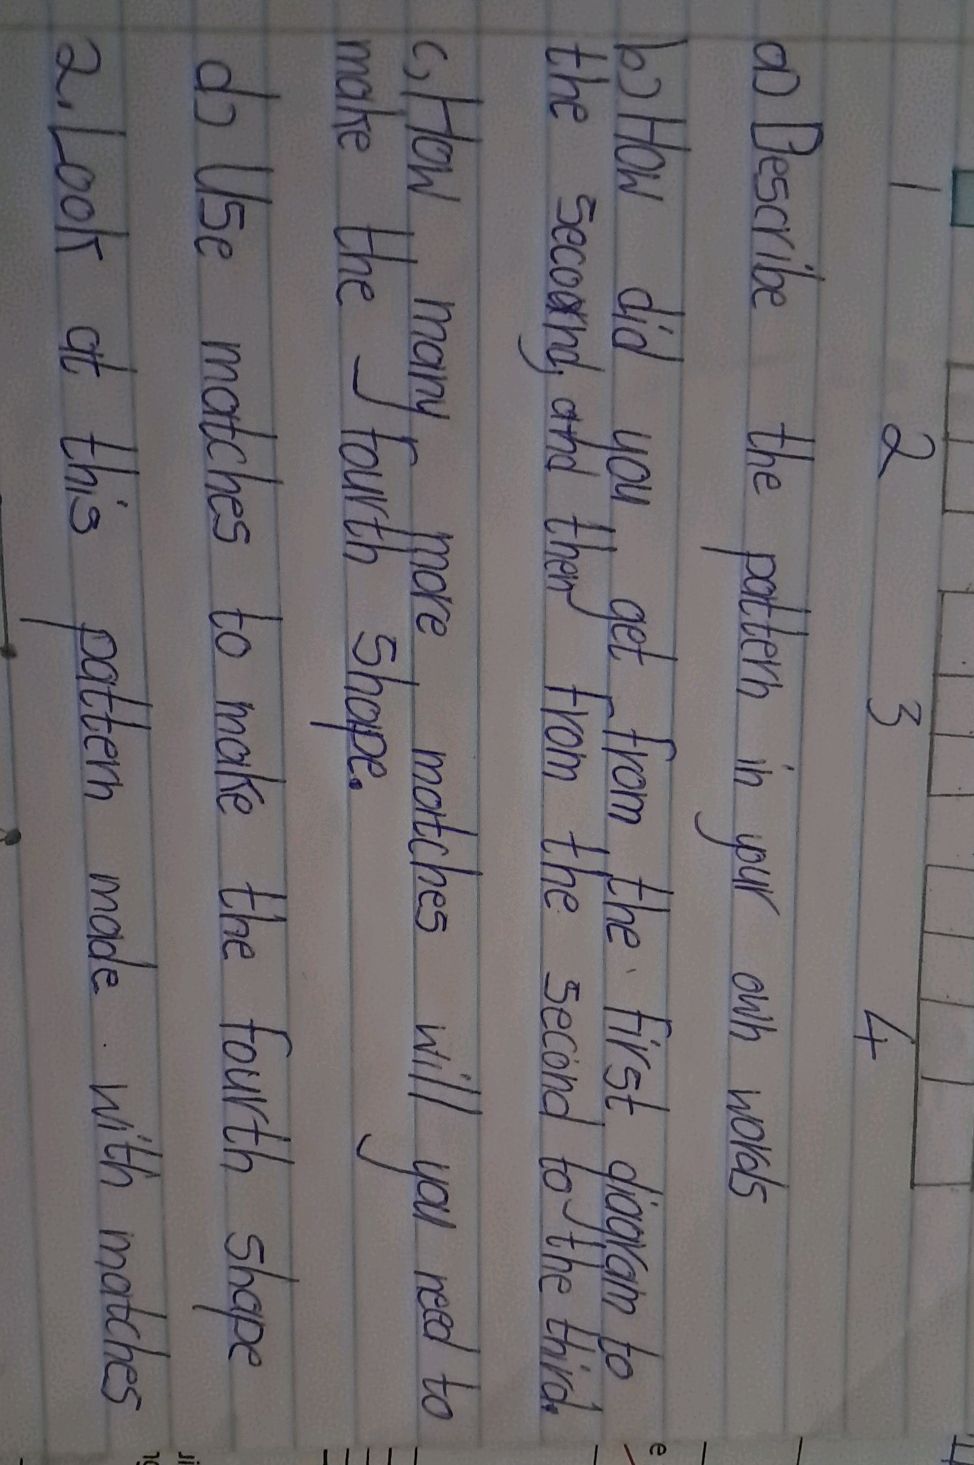 1 2 3 4
a) Describe the pattern in your own words
b) How did you get from the first diagram to
the secoond, and then from the second to the third.
c, How many more matches will you need to
make the fourth shape.
d) Use matches to make the fourth shape
2. Look at this pattern made with matches